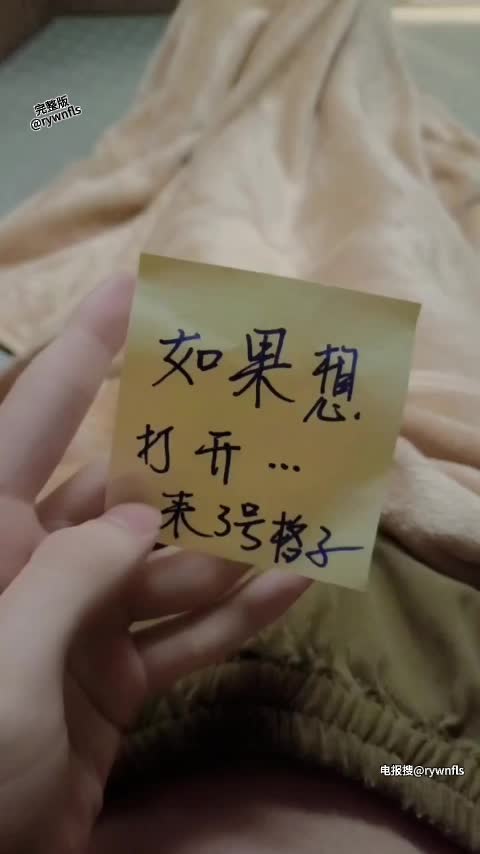 完整版
@rywnfls
如果想
打开...
来3号格子
电报搜@rywnfls